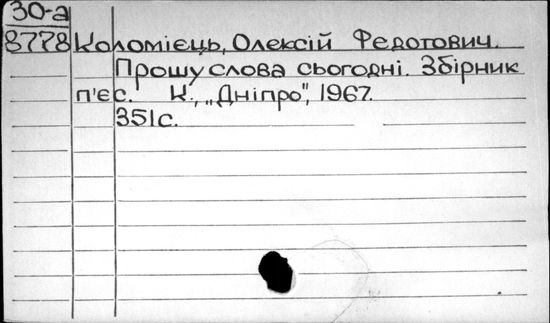 30-а
8778 Коломієць, Олексій Федотович.
Прошу слова сьогодні. Збірник
п'єс. К., „Дніпро", 1967.
351с.